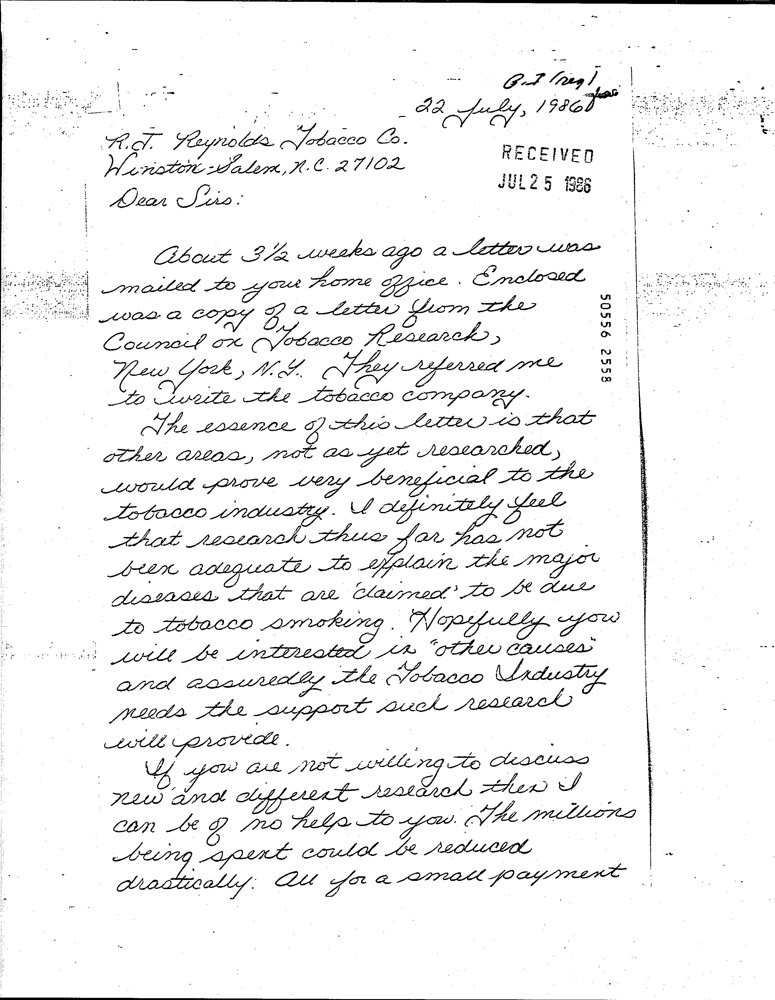 22 July, 1986
R.J. Reynolds Tobacco Co.
Winston-Salem, N.C. 27102
RECEIVED
JUL 25 1986
Dear Sirs:
About 3½ weeks ago a letter was
mailed to your home office. Enclosed
was a copy of a letter from the
Council on Tobacco Research,
New York, N.Y. They referred me
to write the tobacco company.
The essence of this letter is that
other areas, not as yet researched,
would prove very beneficial to the
tobacco industry. I definitely feel
that research thus far has not
been adequate to explain the major
diseases that are 'claimed' to be due
to tobacco smoking. Hopefully you
will be interested in "other causes"
and assuredly the Tobacco Industry
needs the support such research
will provide.
If you are not willing to discuss
new and different research then I
can be of no help to you. The millions
being spent could be reduced
drastically. All for a small payment
50556 2558